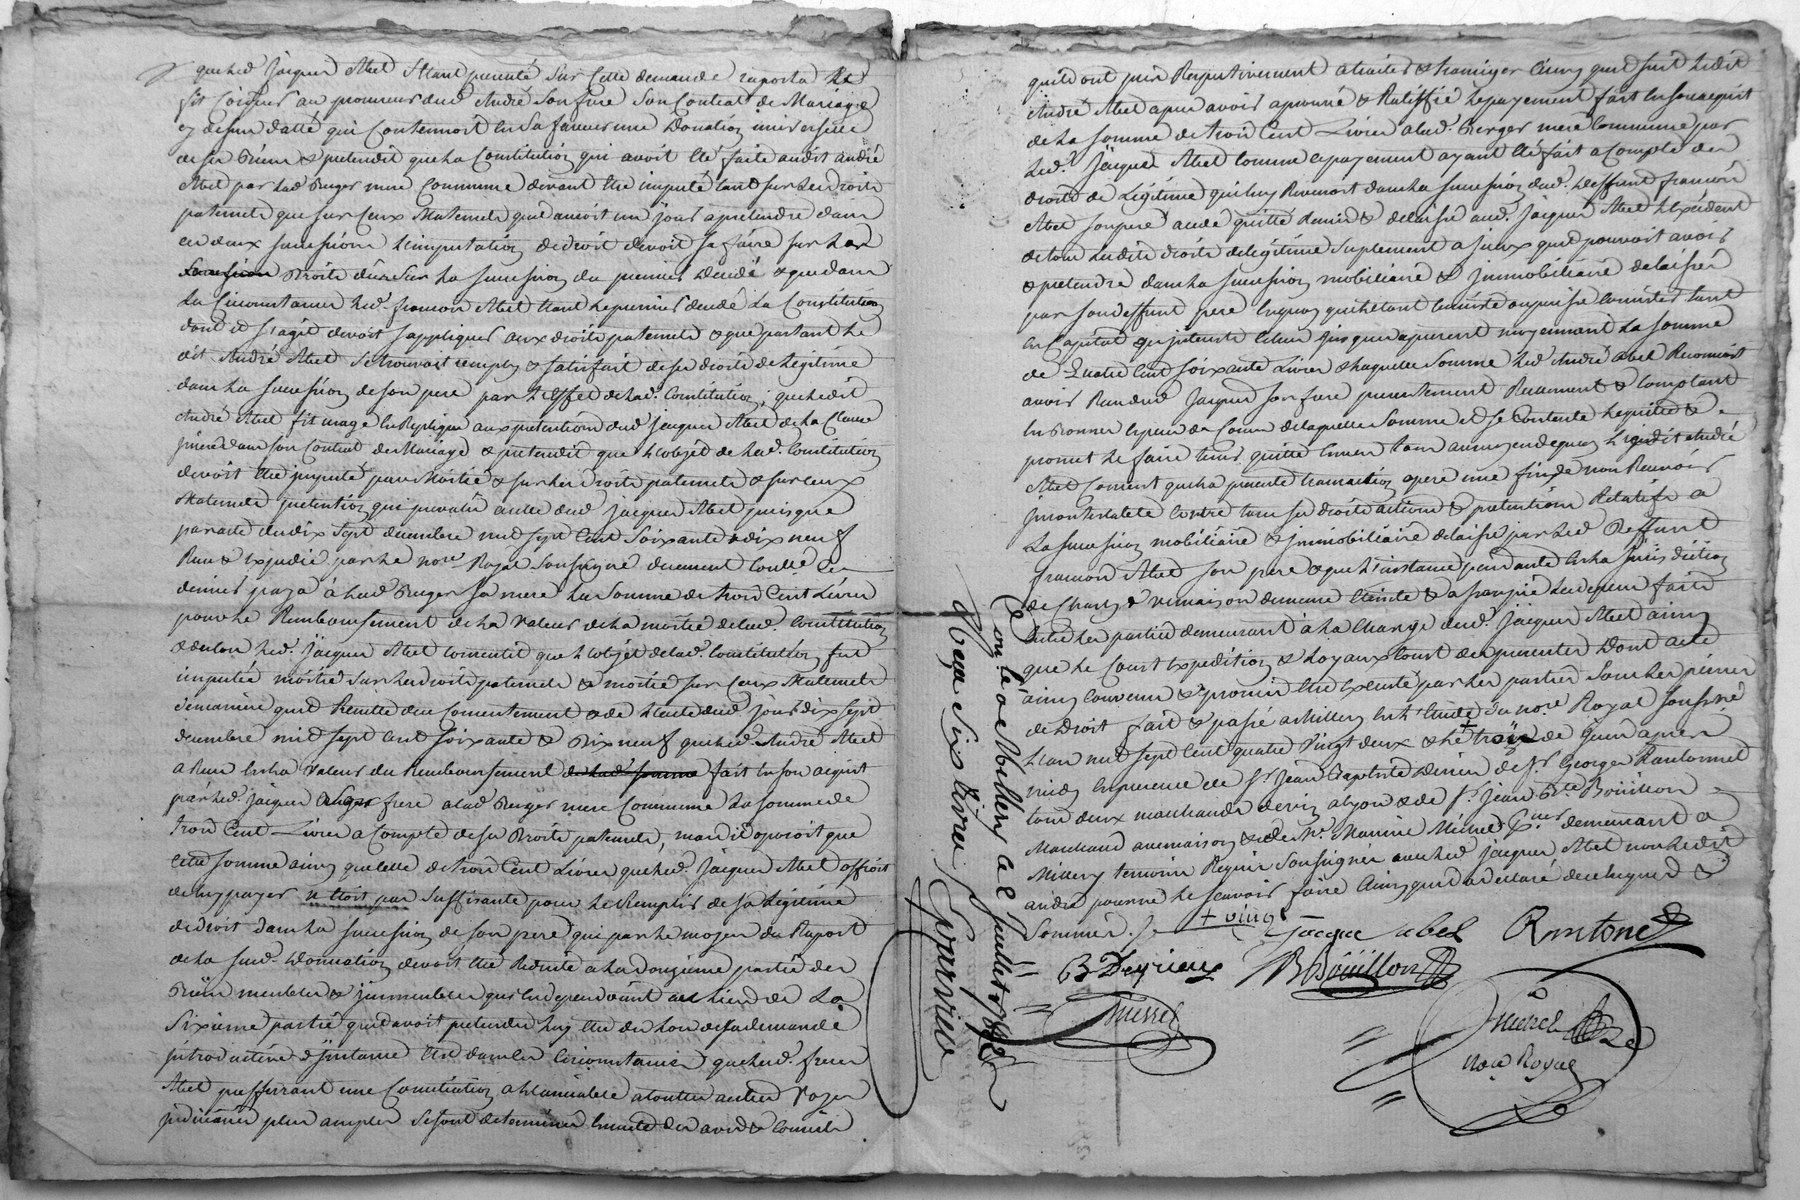 que led. Jacques Abel s'étant presenté sur cette demande raporta et
fit au procureur dud. André son frere son Contrat de Mariage
datté qui Contennoit en sa faveur une Donation universelle
de ses Biens & pretendit que la Constitution qui avoit été faite audit andré
Abel par lad. Berger mere Commune devant être imputé tant sur les Droits
paternels que sur Ceux Maternels qu'il auroit un jour a pretendre dans
ces deux sucessions L'imputation de droit devoit se faire sur les
Droits dûs sur La sucession du premier Decedé & que dans
La Circonstance led. françois Abel étant le premier decedé La Constitution
dont il s'agit devoit s'appliquer aux droits paternels & que partant le
dit André Abel se trouvait remply & satisfait de ses droits de Legitime
dans La sucession de son pere par L'Effet de lad. Constitution, que ledit
André Abel fit usage en Replique aux pretentions dud. Jacques Abel de la Clause
dans son Contrat de Mariage & pretendit que L'objet de lad. Constitution
devoit être imputé par Moitié & sur les Droits paternels & sur ceux
Maternels pretention qui aud. Jacques Abel puisque
par acte du dix sept decembre mil sept Cent Soixante & dix neuf
Reçu & expedié par le nore. Royal soussigné duement Conllé Ce
dernier paya à lad. Berger sa mere La somme de trois Cent Livres
pour le Remboursement de la valeur de la moitié de lad. Constitution
& de lors led. Jacques Abel Consentit que L'objet de lad. Constitution fut
imputée moitié sur les Droits paternels & moitié sur Ceux Maternels
de maniere qu'il Resulte du Consentement & de L'acte dud. jour dix sept
decembre mil sept Cent soixante & Dix neuf que led. André Abel
a Reçu en la valeur du Remboursement de lad. somme fait en son acquit
par led. Jacques son frere a lad. Berger mere Commune La somme de
trois Cent Livres a Compte de ses Droits paternels, mais il oposoit que
Cette somme ainsy que Celle de trois Cent Livres que led. Jacques Abel offroit
de luy payer n'étoit pas suffisante pour le Remplir de sa Legitime
de droit dans La sucession de son pere qui par le moyen du Raport
de la susd. Donnation devoit être Reduite a la Douzieme partie des
Biens meubles & immeubles au Lieu de La
Sixieme partie qu'il avoit pretendu luy être du lors de sa demande
introductive d'Instance Et dans les Circonstances que lesd. freres
Abel preferant une Conciliation a L'amiable a toutes autres voyes
judiciaires plus amples se sont determinés Ensuite des avis & Conseils
qu'ils ont pris Respectivement a traiter & transiger Ainsy qu'il suit ledit
André Abel apres avoir aprouvé & Ratiffié le payement fait en son acquit
de la somme de trois Cent Livres a lad. Berger mere Commune par
led. Jacques Abel Comme Ce payement ayant été fait a Compte des
droits de Legitime qui luy Revenoit dans la sucession dud. Deffunt françois
Abel son pere a cedé quitté Remis & delaissé aud. Jacques Abel L'Exédent
de tous lesdits droits de legitime suplement a Iceux qu'il pouvoit avoir
& pretendre dans la sucession mobiliaire & immobiliaire delaissée
par son deffunt pere En quoy qu'ils Consiste ou puisse Consister tant
en Capital qu'interets Echus jusques apresent moyennant La somme
de Quatre Cent soixante Livres Laquelle somme led. André abel Reconnoit
avoir Reçu dud. Jacques son frere presentement Reellement & Comptant
en Bonnes especes de Cours de laquelle somme il se Contente le quitte &
promet le faire tenir quitte Envers tous au moyen de quoy Ledit André
Abel Consent que la presente transaction opere une fin de non Recevoir
incontestable Contre tous ses droits actions & pretentions Relatifs a
La sucession mobiliaire & immobiliaire delaissée par led. Deffunt
francois Abel son pere & que L'instance pendante en la Jurisdiction
de Charly & vernaison demeure éteinte & assoupie Les depens faits
Entre les parties demeurant à la Charge dud. Jacques Abel ainsy
que le Coust Expedition & Loyaux Couts des presentes Dont acte
ainsy Convenu & promis être Executé par les parties sous les peines
de Droit fait & passé a Millery En L'Etude du nore. Royal soussigné
L'an mil sept Cent quatre vingt deux & le trois de juin apres
midy En presence de sr. Jean Baptiste Derieu & de sr. Georges Rantonnet
tous deux marchands de vin a Lyon & de sr. Jean Bte. Boüillon
Marchand & de sr. Maurice Michel demeurant a
Millery temoins Requis soussignés avec led. Jacques Abel non ledit
andré pour ne le sçavoir faire Ainsy qu'il a declaré de ce Enquis &
Sommé. /.
+ vingt
Jacque abel Rantonet
B Deyrieux JB Boüillon
Michel
nore. Royal
Conlé a Millery le 2 Juillet 1782
Reçu six livres